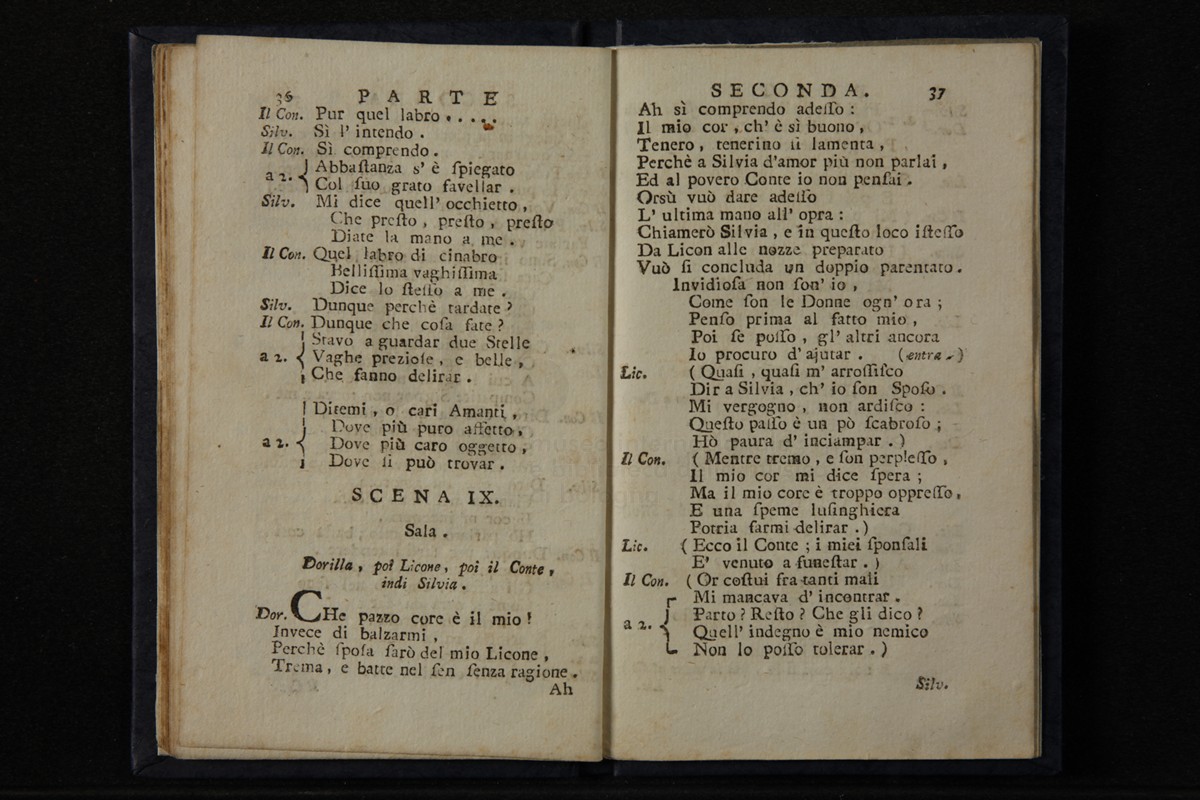 36 PARTE
Il Con. Pur quel labro . . . . .
Silv. Sì l' intendo .
Il Con. Sì comprendo .
a 2. { Abbaſtanza s' è ſpiegato
Col ſuo grato favellar .
Silv. Mi dice quell' occhietto ,
Che preſto , preſto , preſto
Diate la mano a me .
Il Con. Quel labro di cinabro
Belliſſima vaghiſſima
Dice lo ſteſſo a me .
Silv. Dunque perchè tardate ?
Il Con. Dunque che coſa fate ?
Stavo a guardar due Stelle
a 2. { Vaghe prezioſe , e belle ,
Che fanno delirar .
Ditemi , o cari Amanti ,
Dove più puro affetto ,
a 2. { Dove più caro oggetto ,
Dove ſi può trovar .
SCENA IX.
Sala .
Dorilla , poi Licone , poi il Conte ,
indi Silvia .
Dor. CHe pazzo core è il mio !
Invece di balzarmi ,
Perchè ſpoſa ſarò del mio Licone ,
Trema , e batte nel ſen ſenza ragione .
Ah
SECONDA. 37
Ah sì comprendo adeſſo :
Il mio cor , ch' è sì buono ,
Tenero , tenerino ſi lamenta ,
Perchè a Silvia d'amor più non parlai ,
Ed al povero Conte io non penſai .
Orsù vuò dare adeſſo
L' ultima mano all' opra :
Chiamerò Silvia , e in queſto loco iſteſſo
Da Licon alle nozze preparato
Vuò ſi concluda un doppio parentato .
Invidioſa non ſon' io ,
Come ſon le Donne ogn' ora ;
Penſo prima al fatto mio ,
Poi ſe poſſo , gl' altri ancora
Io procuro d' ajutar . (entra .)
Lic. ( Quaſi , quaſi m' arroſſiſco
Dir a Silvia , ch' io ſon Spoſo .
Mi vergogno , non ardiſco :
Queſto paſſo è un pò ſcabroſo ;
Hò paura d' inciampar . )
Il Con. ( Mentre tremo , e ſon perpleſſo ,
Il mio cor mi dice ſpera ;
Ma il mio core è troppo oppreſſo ,
E una ſpeme luſinghiera
Potria farmi delirar . )
Lic. ( Ecco il Conte ; i miei ſponſali
E' venuto a funeſtar . )
Il Con. ( Or coſtui fra tanti mali
Mi mancava d' incontrar .
Parto ? Reſto ? Che gli dico ?
a 2. { Quell' indegno è mio nemico
Non lo poſſo tolerar . )
Silv.